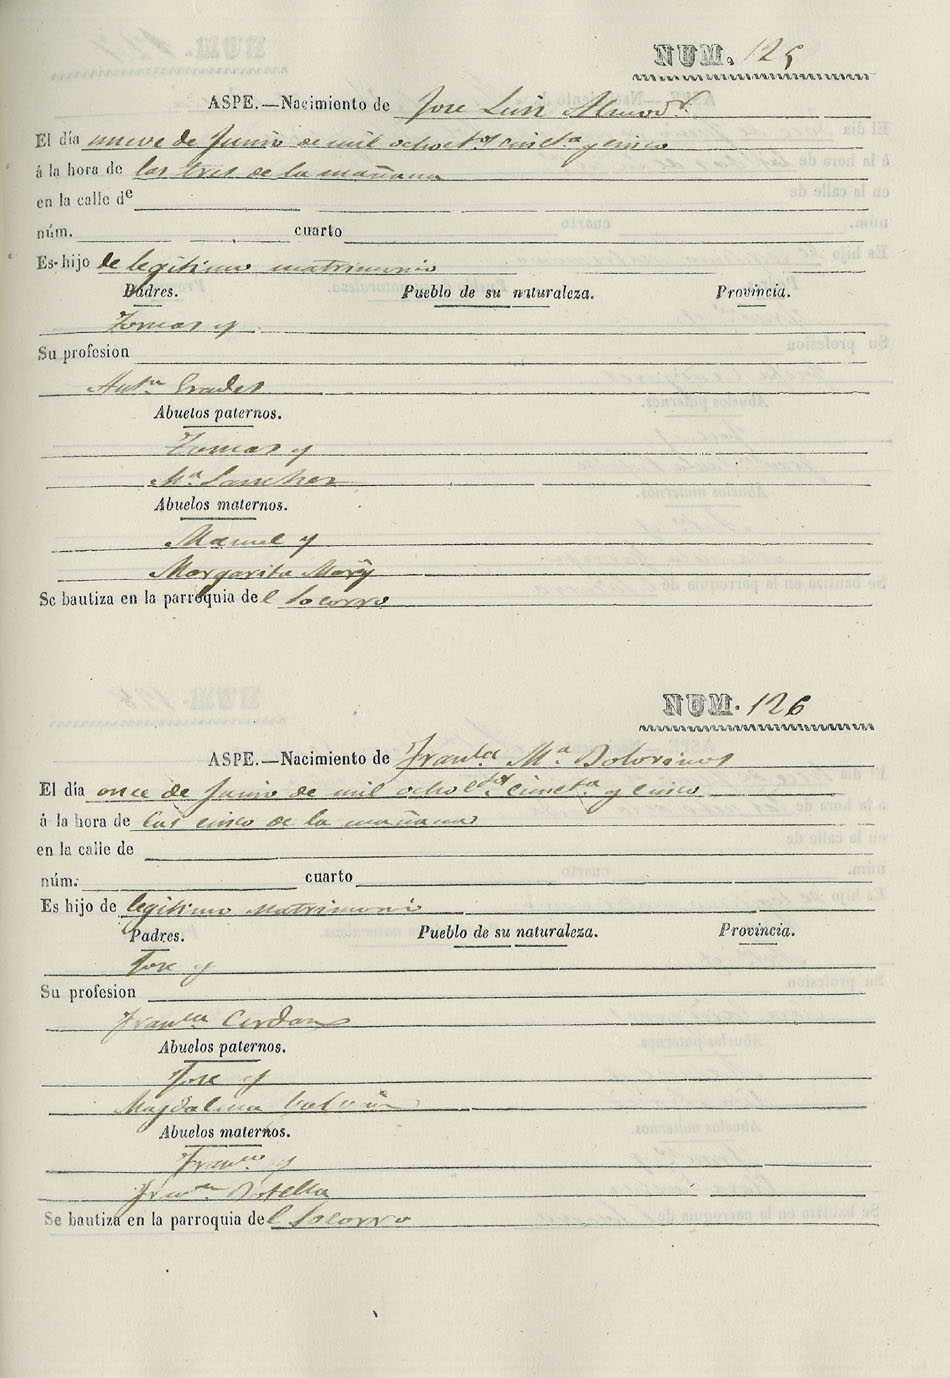 NUM. 125
ASPE.—Nacimiento de Jose Luis Almodr
El día nueve de Junio de mil ochocts cincta y cinco
á la hora de las tres de la mañana
en la calle de
núm. cuarto
Es hijo de legitimo matrimonio
Padres. Pueblo de su naturaleza. Provincia.
Tomas y
Su profesion
Anta Grades
Abuelos paternos.
Tomas y
Ma Sanchez
Abuelos maternos.
Manuel y
Margarita
Se bautiza en la parroquia del Socorro
NUM. 126
ASPE.—Nacimiento de Franca Ma Dolorinos
El día once de Junio de mil ochoctos cincta y cinco
á la hora de las cinco de la mañana
en la calle de
núm. cuarto
Es hijo de legitimo matrimoni
Padres. Pueblo de su naturaleza. Provincia.
Jose y
Su profesion
Franca Cerdan
Abuelos paternos.
Jose y
Magdalena
Abuelos maternos.
Franco y
Franca Botella
Se bautiza en la parroquia del Socorro